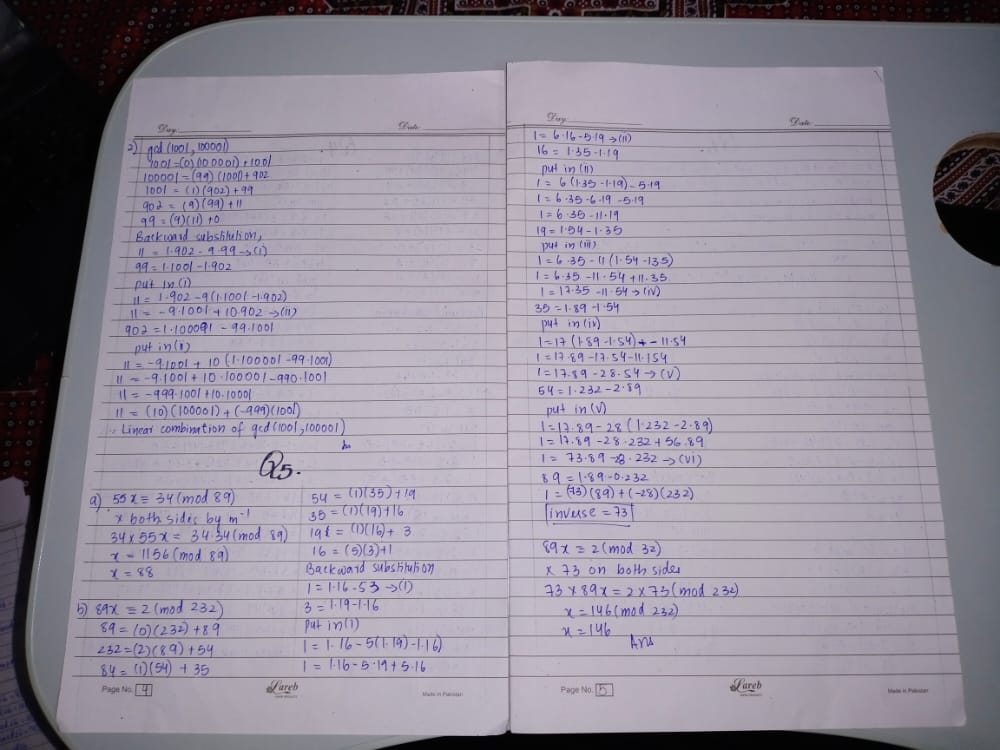 Day Date
2) gcd (1001, 100001)
1001 = (0) (100001) + 1001
100001 = (99) (1001) + 902
1001 = (1) (902) + 99
902 = (9) (99) + 11
99 = (9)(11) + 0
Backward substitution,
11 = 1.902 - 9.99 → (i)
99 = 1.1001 - 1.902
put in (i)
11 = 1.902 - 9(1.1001 - 1.902)
11 = -9.1001 + 10.902 → (ii)
902 = 1.100091 - 99.1001
put in (ii)
11 = -9.1001 + 10 (1.100001 - 99.1001)
11 = -9.1001 + 10.100001 - 990.1001
11 = -999.1001 + 10.10001
11 = (10) (100001) + (-999) (1001)
Linear combination of gcd (1001, 100001)
Q5.
a) 55x ≡ 34 (mod 89)
x both sides by m⁻¹
34 x 55x = 34.34 (mod 89)
x = 1156 (mod 89)
x = 88
b) 89x ≡ 2 (mod 232)
89 = (0) (232) + 89
232 = (2) (89) + 54
89 = (1) (54) + 35
54 = (1) (35) + 19
35 = (1) (19) + 16
19 = (1) (16) + 3
16 = (5) (3) + 1
Backward substitution
1 = 1.16 - 5.3 → (i)
3 = 1.19 - 1.16
put in (i)
1 = 1.16 - 5(1.19) - 1.16)
1 = 1.16 - 5.19 + 5.16
Page No. 4 Lareb Made in Pakistan
Day Date
1 = 6.16 - 5.19 → (ii)
16 = 1.35 - 1.19
put in (ii)
1 = 6 (1.35 - 1.19) - 5.19
1 = 6.35 - 6.19 - 5.19
1 = 6.35 - 11.19
19 = 1.54 - 1.35
put in (iii)
1 = 6.35 - 11 (1.54 - 135)
1 = 6.35 - 11.54 + 11.35
1 = 17.35 - 11.54 → (iv)
35 = 1.89 - 1.54
put in (iv)
1 = 17 (1.89 - 1.54) - 11.54
1 = 17.89 - 17.54 - 11.154
1 = 17.89 - 28.54 → (v)
54 = 1.232 - 2.89
put in (v)
1 = 17.89 - 28 (1.232 - 2.89)
1 = 17.89 - 28.232 + 56.89
1 = 73.89 - 28.232 → (vi)
89 = 1.89 - 0.232
1 = (73) (89) + (-28) (232)
inverse = 73
89x = 2 (mod 32)
x 73 on both sides
73 x 89x = 2 x 73 (mod 232)
x = 146 (mod 232)
x = 146
Ans
Page No. 5 Lareb Made in Pakistan